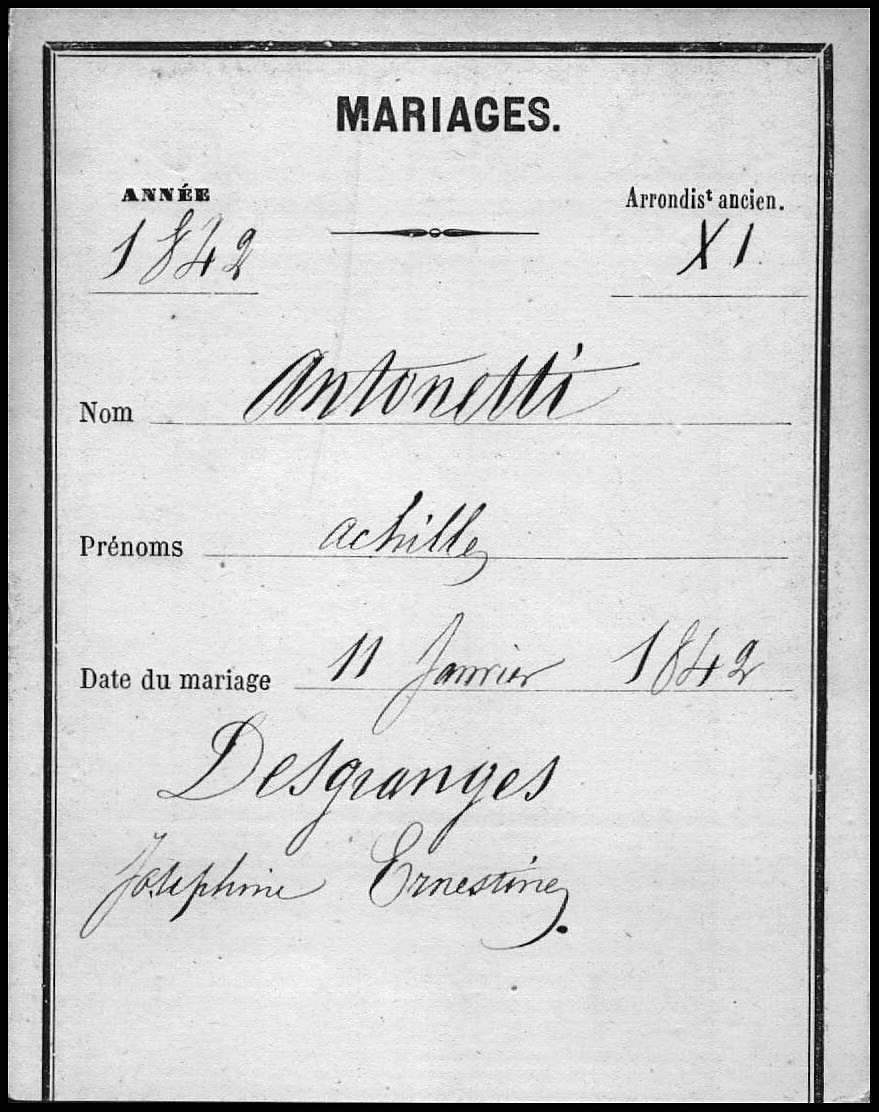 MARIAGES.
ANNÉE
1842
Arrondis^t ancien.
XI
Nom Antonetti
Prénoms achille
Date du mariage 11 Janvier 1842
Desgranges
Joséphine Ernestine.